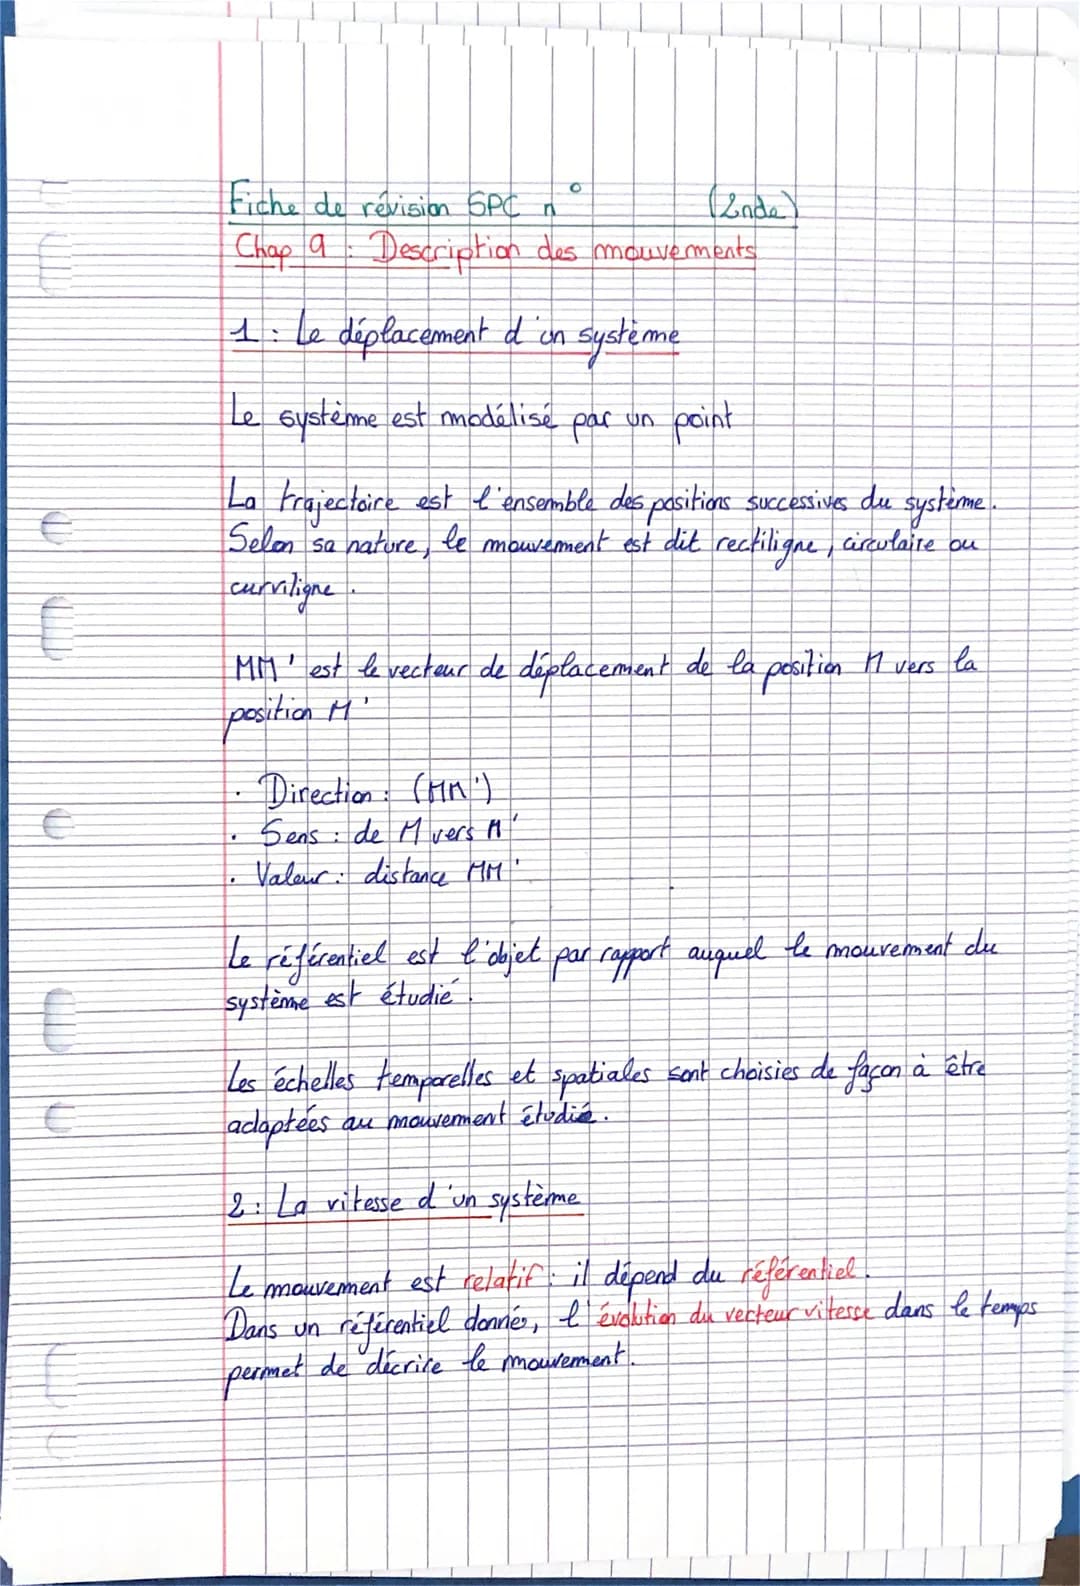 Fiche de révision SPC n° (2nde)
Chap 9 : Description des mouvements
1 : Le déplacement d'un système
Le système est modélisé par un point
La trajectoire est l'ensemble des positions successives du système.
Selon sa nature, le mouvement est dit rectiligne, circulaire ou
curviligne.
MM' est le vecteur de déplacement de la position M vers la
position M'
· Direction : (MM')
· Sens : de M vers M'
· Valeur : distance MM'
Le référentiel est l'objet par rapport auquel le mouvement du
système est étudié.
Les échelles temporelles et spatiales sont choisies de façon à être
adaptées au mouvement étudié.
2 : La vitesse d'un système
Le mouvement est relatif : il dépend du référentiel.
Dans un référentiel donné, l'évolution du vecteur vitesse dans le temps
permet de décrire le mouvement.